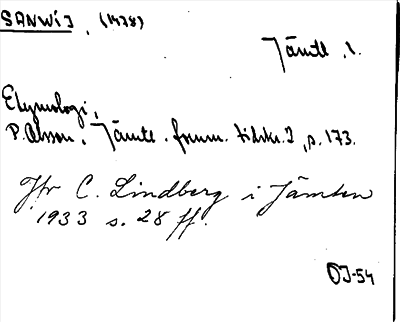 SANWIJ, (1438)
Jämtl, l.
Etymologi,
P. Olsson, Jämtl. fornm. tidskr. 2, s. 173.
Jfr C. Lindberg i Jämten
1933 s. 28 ff.
OJ-54